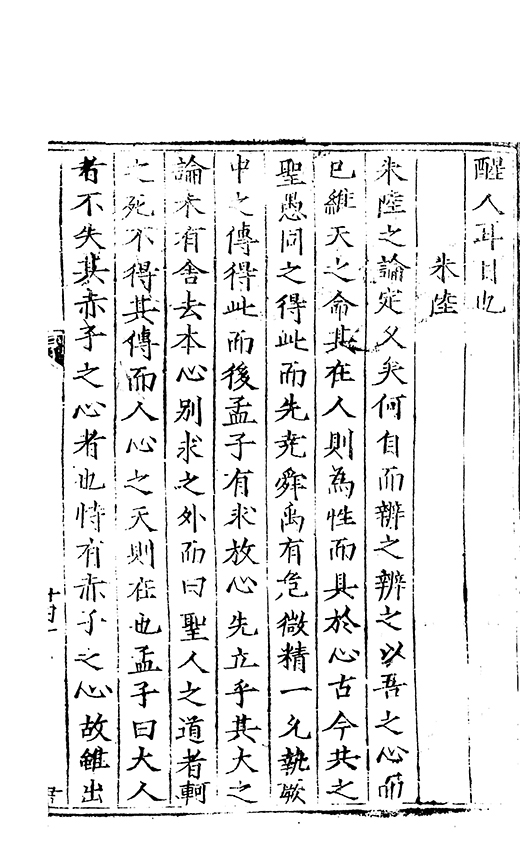 醒人耳目也
朱陸
朱陸之論定久矣何自而辨之辨之以吾之心而
已維天之命其在人則為性而具於心古今共之
聖愚同之得此而先堯舜禹有危微精一允執厥
中之傳得此而後孟子有求放心先立乎其大之
論未有舍去本心別求之外而曰聖人之道者軻
之死不得其傳而人心之天則在也孟子曰大人
者不失其赤子之心者也恃有赤子之心故雖出